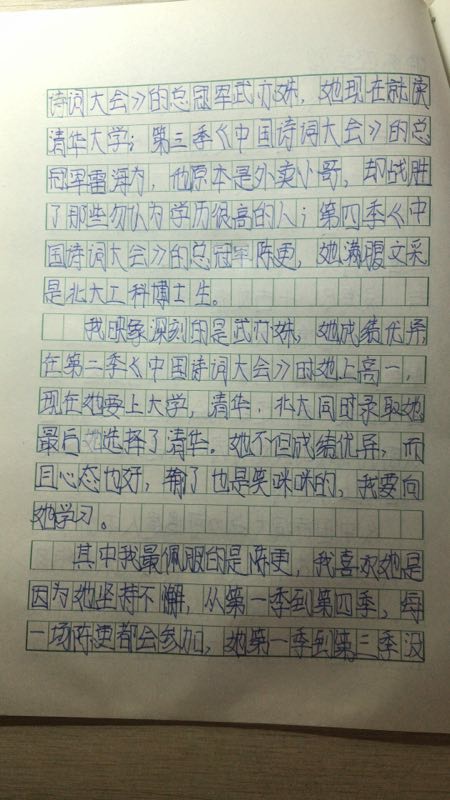 诗词大会》的总冠军武亦姝，她现在就读
清华大学；第三季《中国诗词大会》的总
冠军雷海为，他原本是外卖小哥，却战胜
了那些勿认为学历很高的人；第四季《中
国诗词大会》的总冠军陈更，她满腹文采
是北大工科博士生。
我映象深刻的是武亦姝，她成绩优异，
在第二季《中国诗词大会》时她上高一，
现在她要上大学，清华、北大同时录取她
最后她选择了清华。她不但成绩优异，而
且心态也好，输了也是笑咪咪的，我要向
她学习。
其中我最佩服的是陈更，我喜欢她是
因为她坚持不懈，从第一季到第四季，每
一场陈更都会参加，她第一季到第三季没